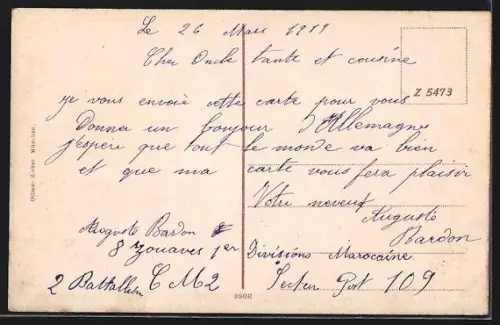 Le 26 Mars 1919
Cher Oncle tante et cousine
Z 5473
je vous envoie cette carte pour vous
Donna un bonjour d'Allemagne
j'espère que tout le monde va bien
et que ma carte vous fera plaisir
Votre neveux Auguste
Bardon
Auguste Bardon
8 zouaves 1er Divisions Marocaine
2 Battallion C M 2 Secteur Post 109
8808